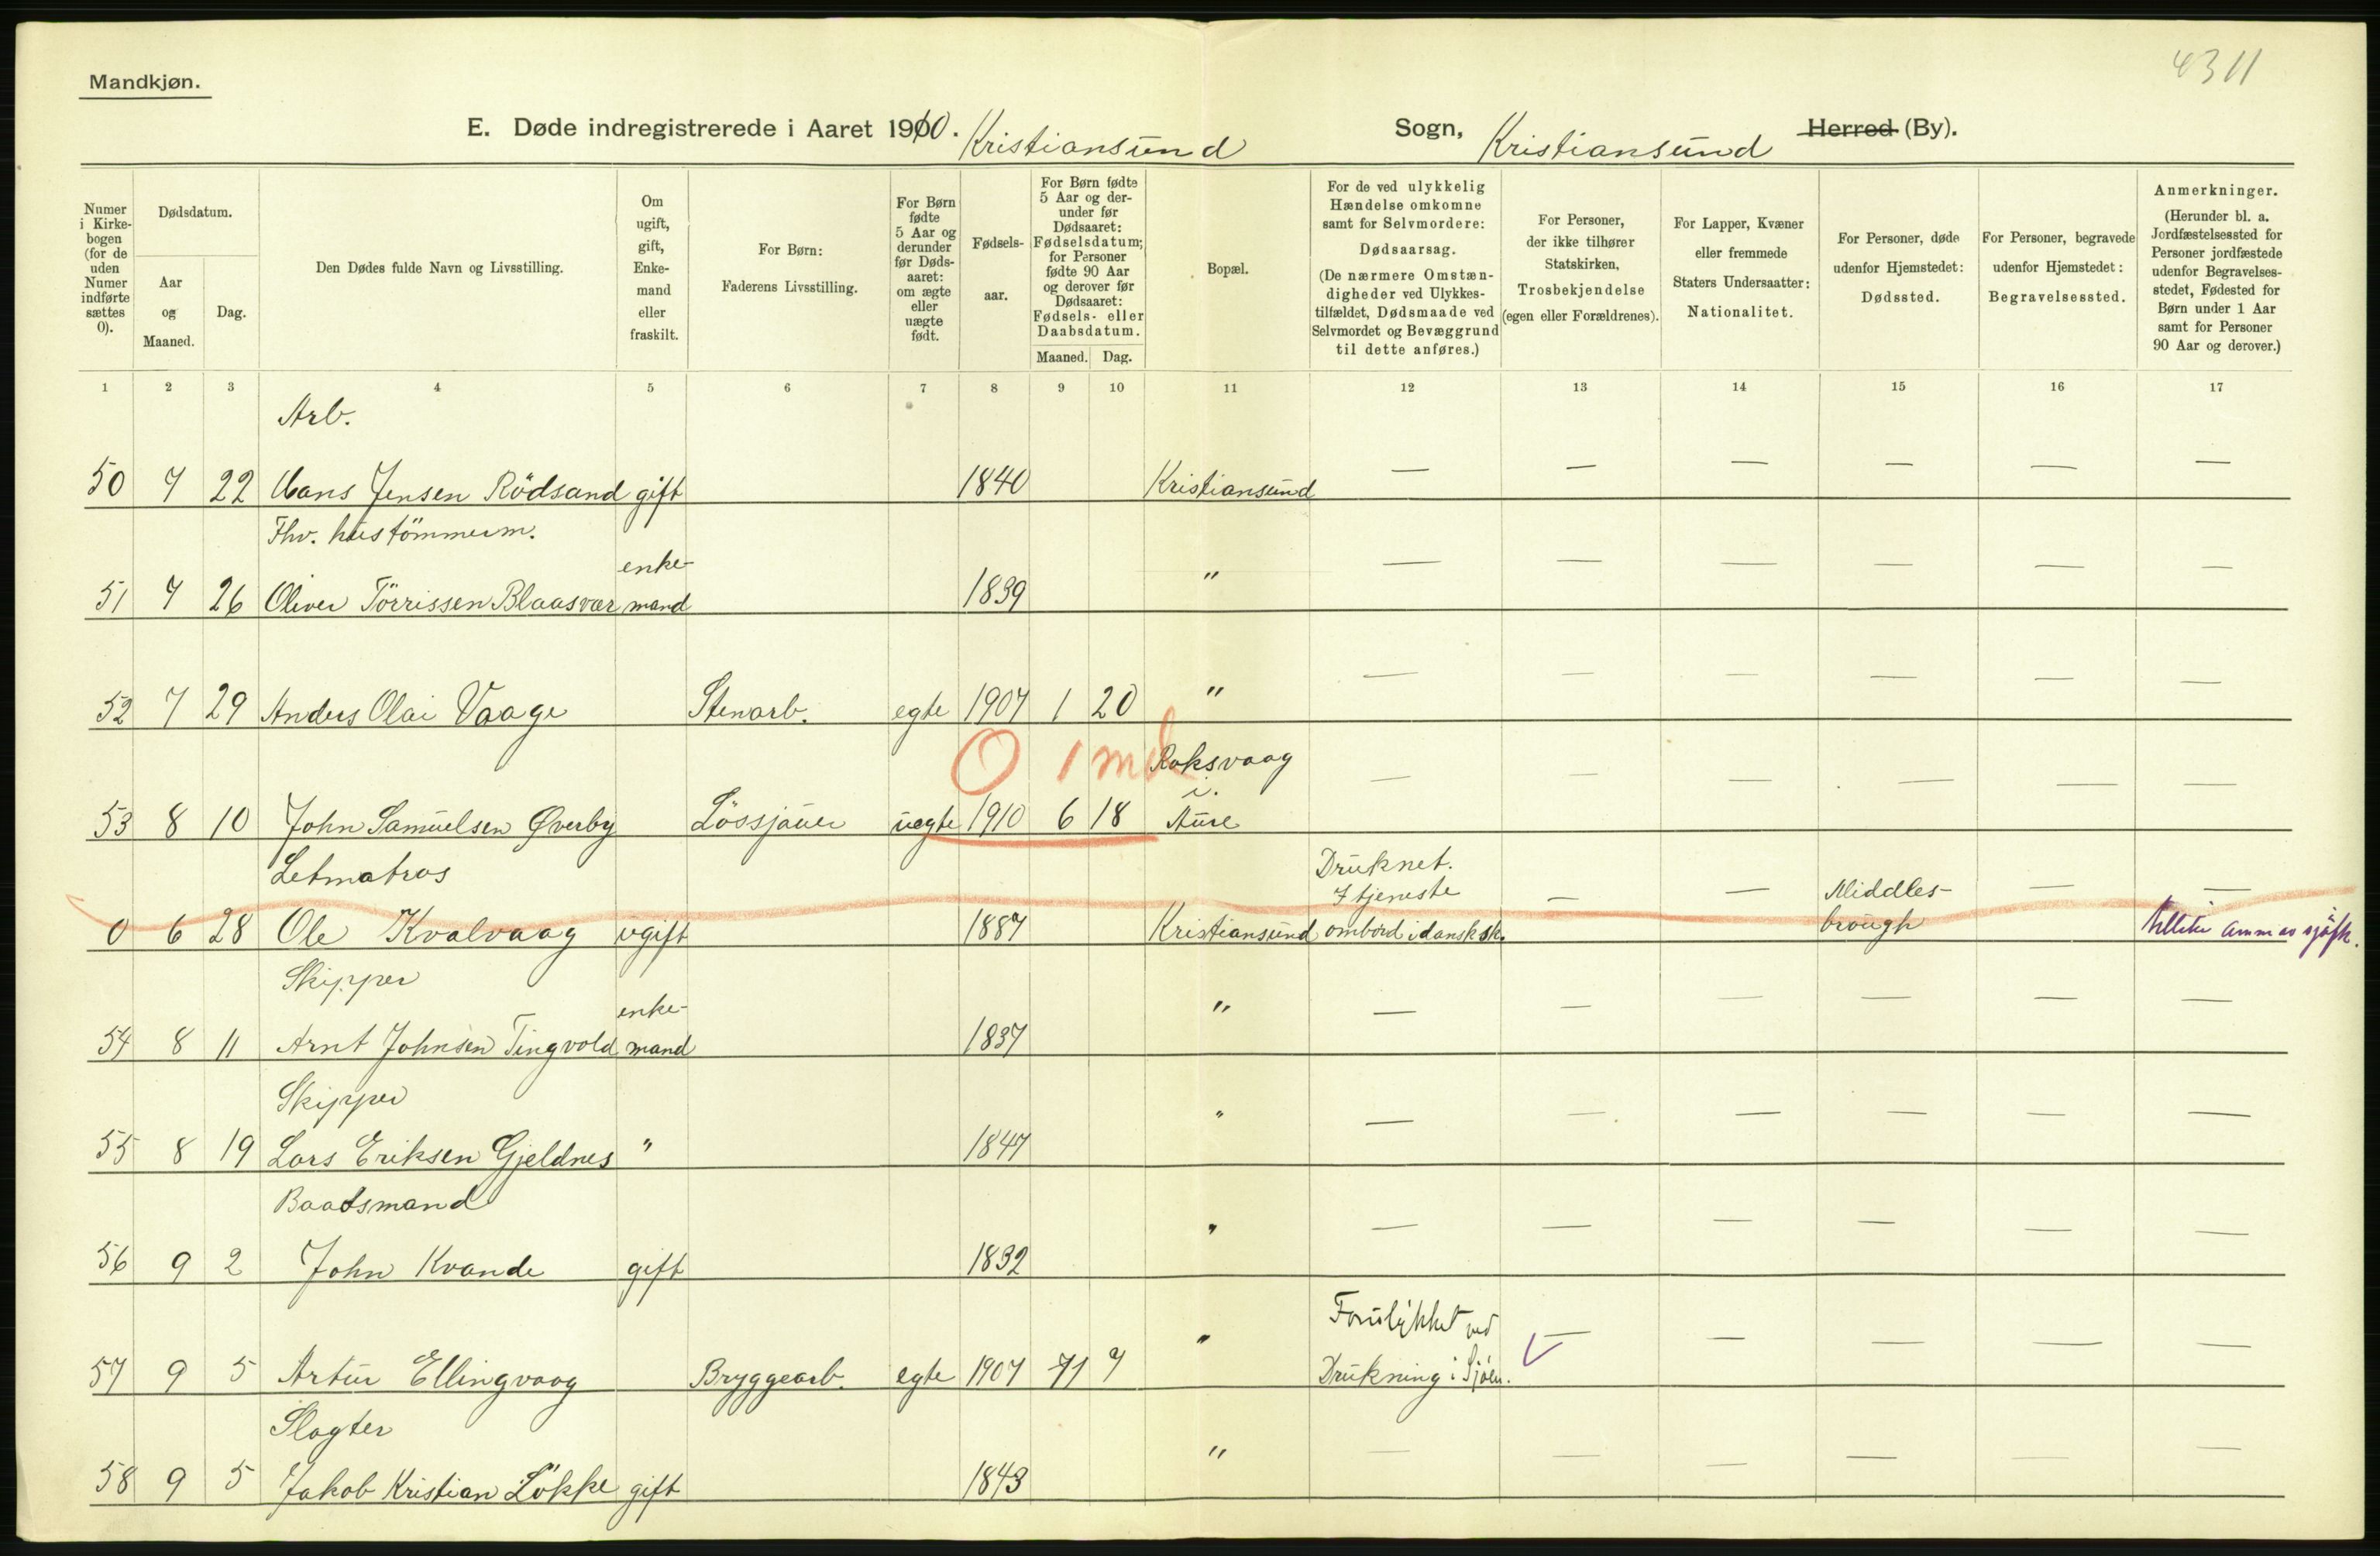 4311
Mandkjøn.
E. Døde indregistrerede i Aaret 1910. Kristiansund Sogn, Kristiansund Herred (By).
Numer i Kirke-bogen (for de uden Numer indførte sættes 0).
Dødsdatum.
Aar og Maaned.
Dag.
Den Dødes fulde Navn og Livsstilling.
Om ugift, gift, Enke-mand eller fraskilt.
For Børn: Faderens Livsstilling.
For Børn fødte 5 Aar og derunder før Døds-aaret: om ægte eller uægte født.
Fødsels-aar.
For Børn fødte 5 Aar og der-under før Dødsaaret: Fødselsdatum; for Personer fødte 90 Aar og derover før Dødsaaret: Fødsels- eller Daabsdatum.
Maaned. Dag.
Bopæl.
For de ved ulykkelig Hændelse omkomne samt for Selvmordere: Dødsaarsag. (De nærmere Omstæn-digheder ved Ulykkes-tilfældet, Dødsmaade ved Selvmordet og Bevæggrund til dette anføres.)
For Personer, der ikke tilhører Statskirken, Trosbekjendelse (egen eller Forældrenes).
For Lapper, Kvæner eller fremmede Staters Undersaatter: Nationalitet.
For Personer, døde udenfor Hjemstedet: Dødssted.
For Personer, begravede udenfor Hjemstedet: Begravelsessted.
Anmerkninger. (Herunder bl. a. Jordfæstelsessted for Personer jordfæstede udenfor Begravelses-stedet, Fødested for Børn under 1 Aar samt for Personer 90 Aar og derover.)
1 2 3 4 5 6 7 8 9 10 11 12 13 14 15 16 17
Arb.
50 7 22 Hans Jensen Rödsand gift 1840 Kristiansund — — — — — —
Fhv. hustömmerm.
enke-
51 7 26 Oliver Törrissen Blaasvær mand 1839 " — — — — — —
52 7 29 Anders Olai Vaage Stenarb. egte 1907 1 20 " — — — — — —
0 1 md
Roksvaag
i
53 8 10 John Samuelsen Øverby Lössjauer uegte 1910 6 18 Aure — — — — — —
Letmatros
Druknet.
I tjeneste
Middles-
0 6 28 Ole Kvalvaag ugift 1887 Kristiansund ombord i dansk sk. — — brough — —
Skipper
enke-
54 8 11 Arnt Johnsen Tingvold mand 1837 " — — — — — —
Skipper
55 8 19 Lars Eriksen Gjeldnes " 1847 " — — — — — —
Baadsmand
56 9 2 John Kvande gift 1832 " — — — — — —
Forulykket ved
57 9 5 Artur Ellingvaag Bryggearb. egte 1907 11 9 " Drukning i Sjöen. — — — — —
Slagter
58 9 5 Jakob Kristian Lökke gift 1843 " — — — — — —